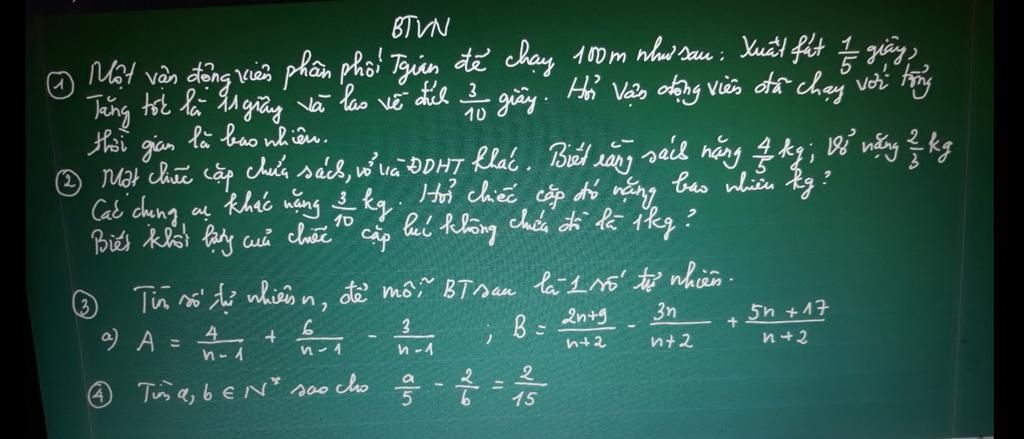 BTVN
① Một vận động viên phân phối Tgian để chạy 100m như sau: Xuất fát 1/5 giây,
Tăng tốc là 11 giây và lao về đích 3/10 giây. Hỏi vận động viên đã chạy với tổng
thời gian là bao nhiêu.
② Một chiếc cặp chứa sách, vở và ĐDHT khác. Biết rằng sách nặng 4/5 kg; Vở nặng 2/3 kg
Các dụng cụ khác nặng 3/10 kg. Hỏi chiếc cặp đó nặng bao nhiêu kg?
Biết khối lượng của chiếc cặp lúc không chứa đồ là 1kg?
③ Tìm số tự nhiên n, để mỗi BT sau là 1 số tự nhiên.
a) A = 4/(n-1) + 6/(n-1) - 3/(n-1) ; B = (2n+9)/(n+2) - 3n/(n+2) + (5n+17)/(n+2)
④ Tìm a, b ∈ N* sao cho a/5 - 2/b = 2/15